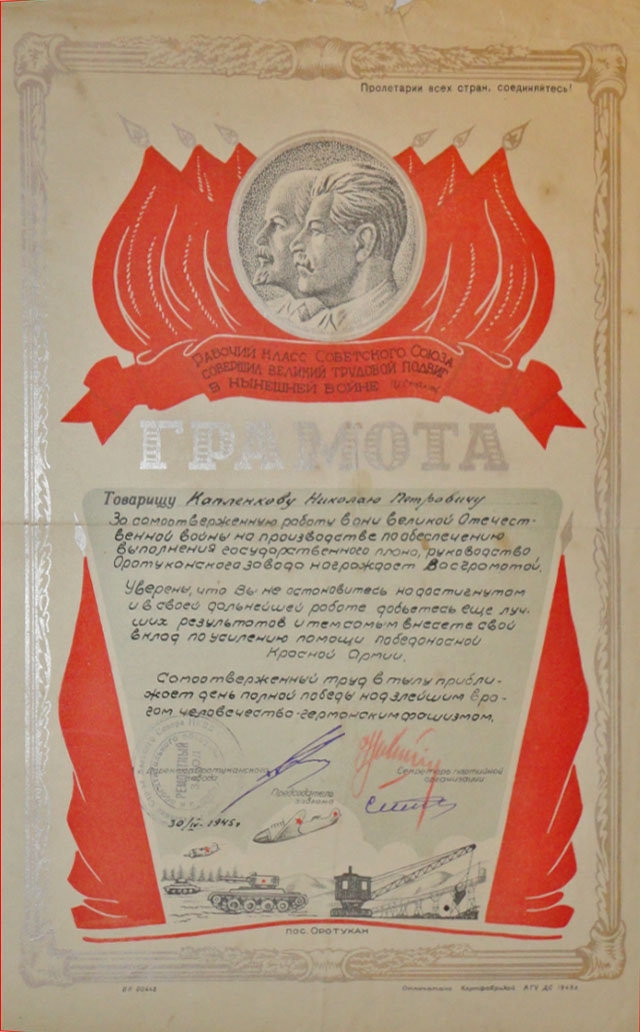 Пролетарии всех стран, соединяйтесь!
Рабочий класс Советского Союза
совершил великий трудовой подвиг
в нынешней войне (И. Сталин)
ГРАМОТА
Товарищу Капленкову Николаю Петровичу
За самоотверженную работу в дни Великой Отечест-
венной войны на производстве по обеспечению
выполнения государственного плана, руководство
Оротуканского завода награждает Вас грамотой.
Уверены, что Вы не остановитесь на достигнутом
и в своей дальнейшей работе добьетесь еще луч-
ших результатов и тем самым внесете свой
вклад по усилению помощи победоносной
Красной Армии.
Самоотверженный труд в тылу прибли-
жает день полной победы над злейшим вра-
гом человечества-германским фашизмом.
РЕМОНТНЫЙ
ЗАВОД
Директор Оротуканского
завода
Председатель
завкома
Секретарь партийной
организации
30/IV 1945г
пос. Оротукан
Отпечатано Картфабрикой